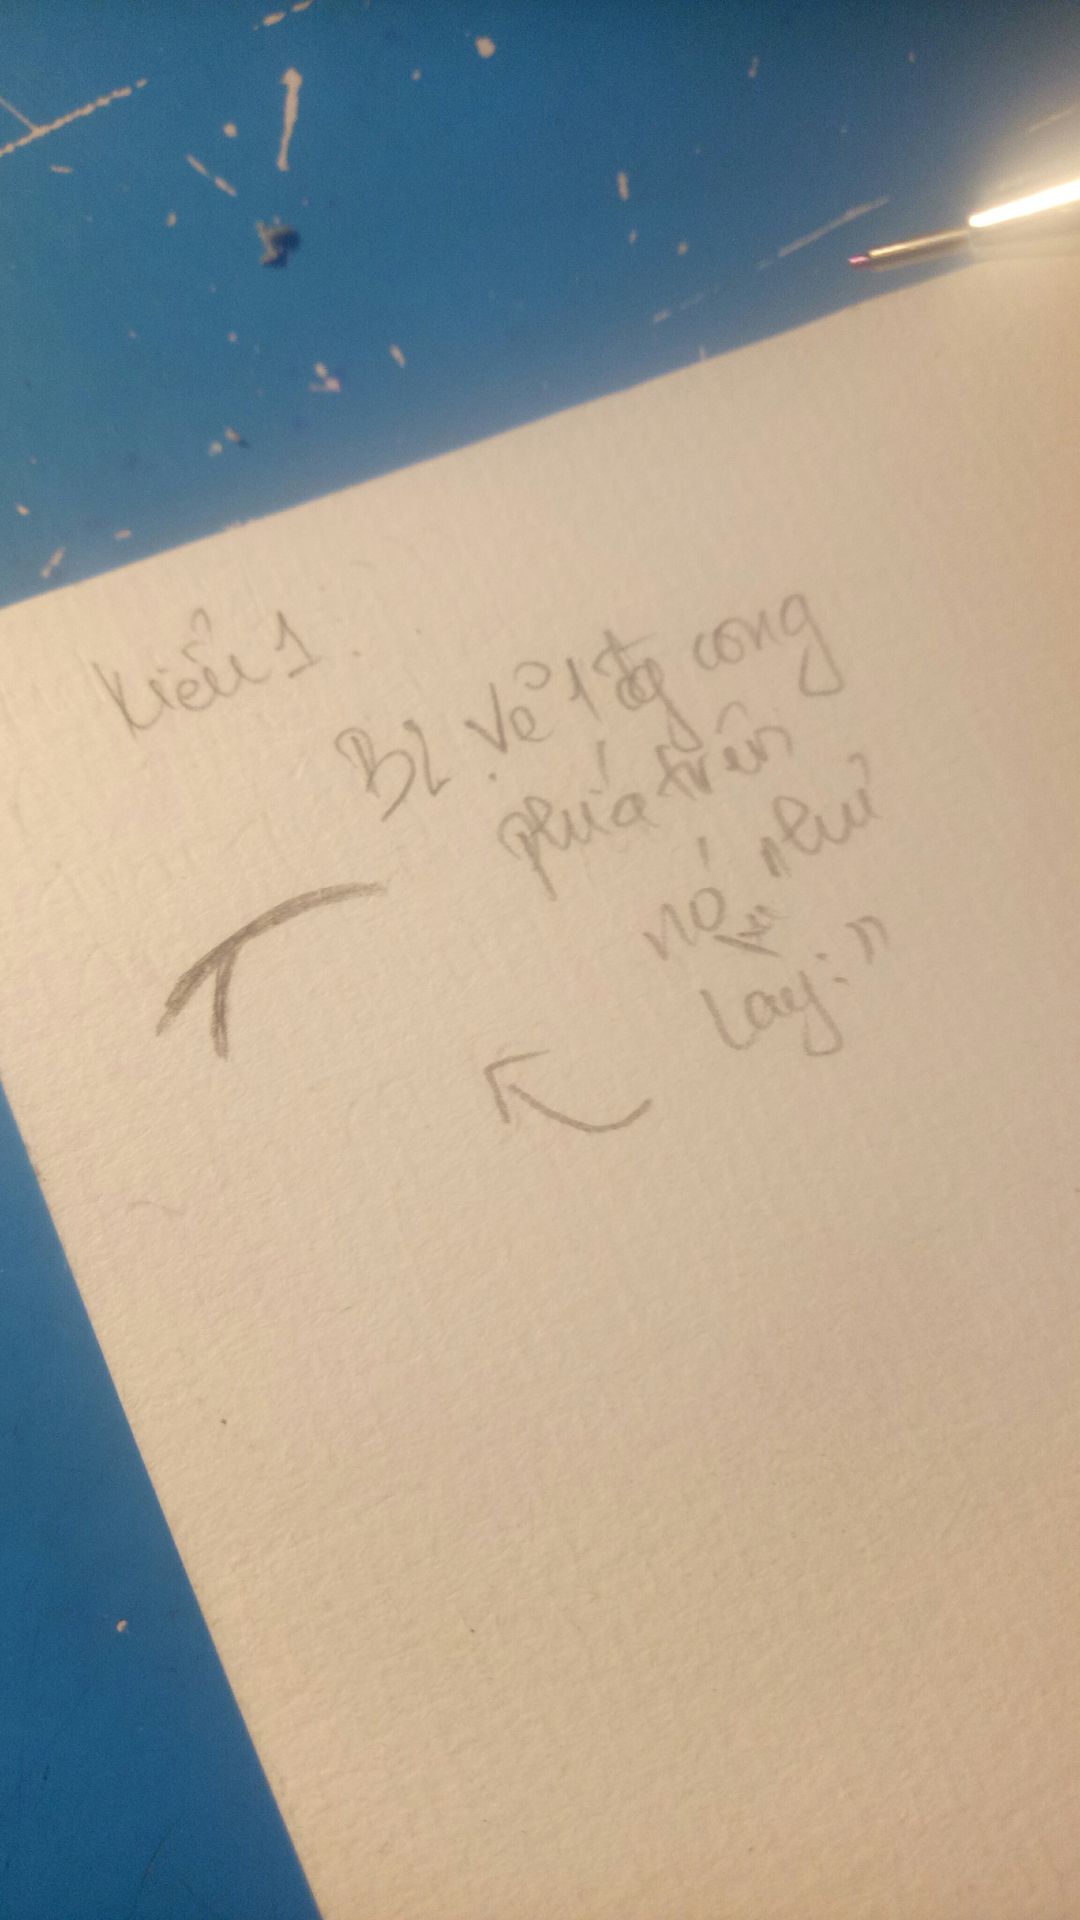 Kiểu 1.
B1. Vẽ 1 đg cong
phía trên
nó như
lày:"